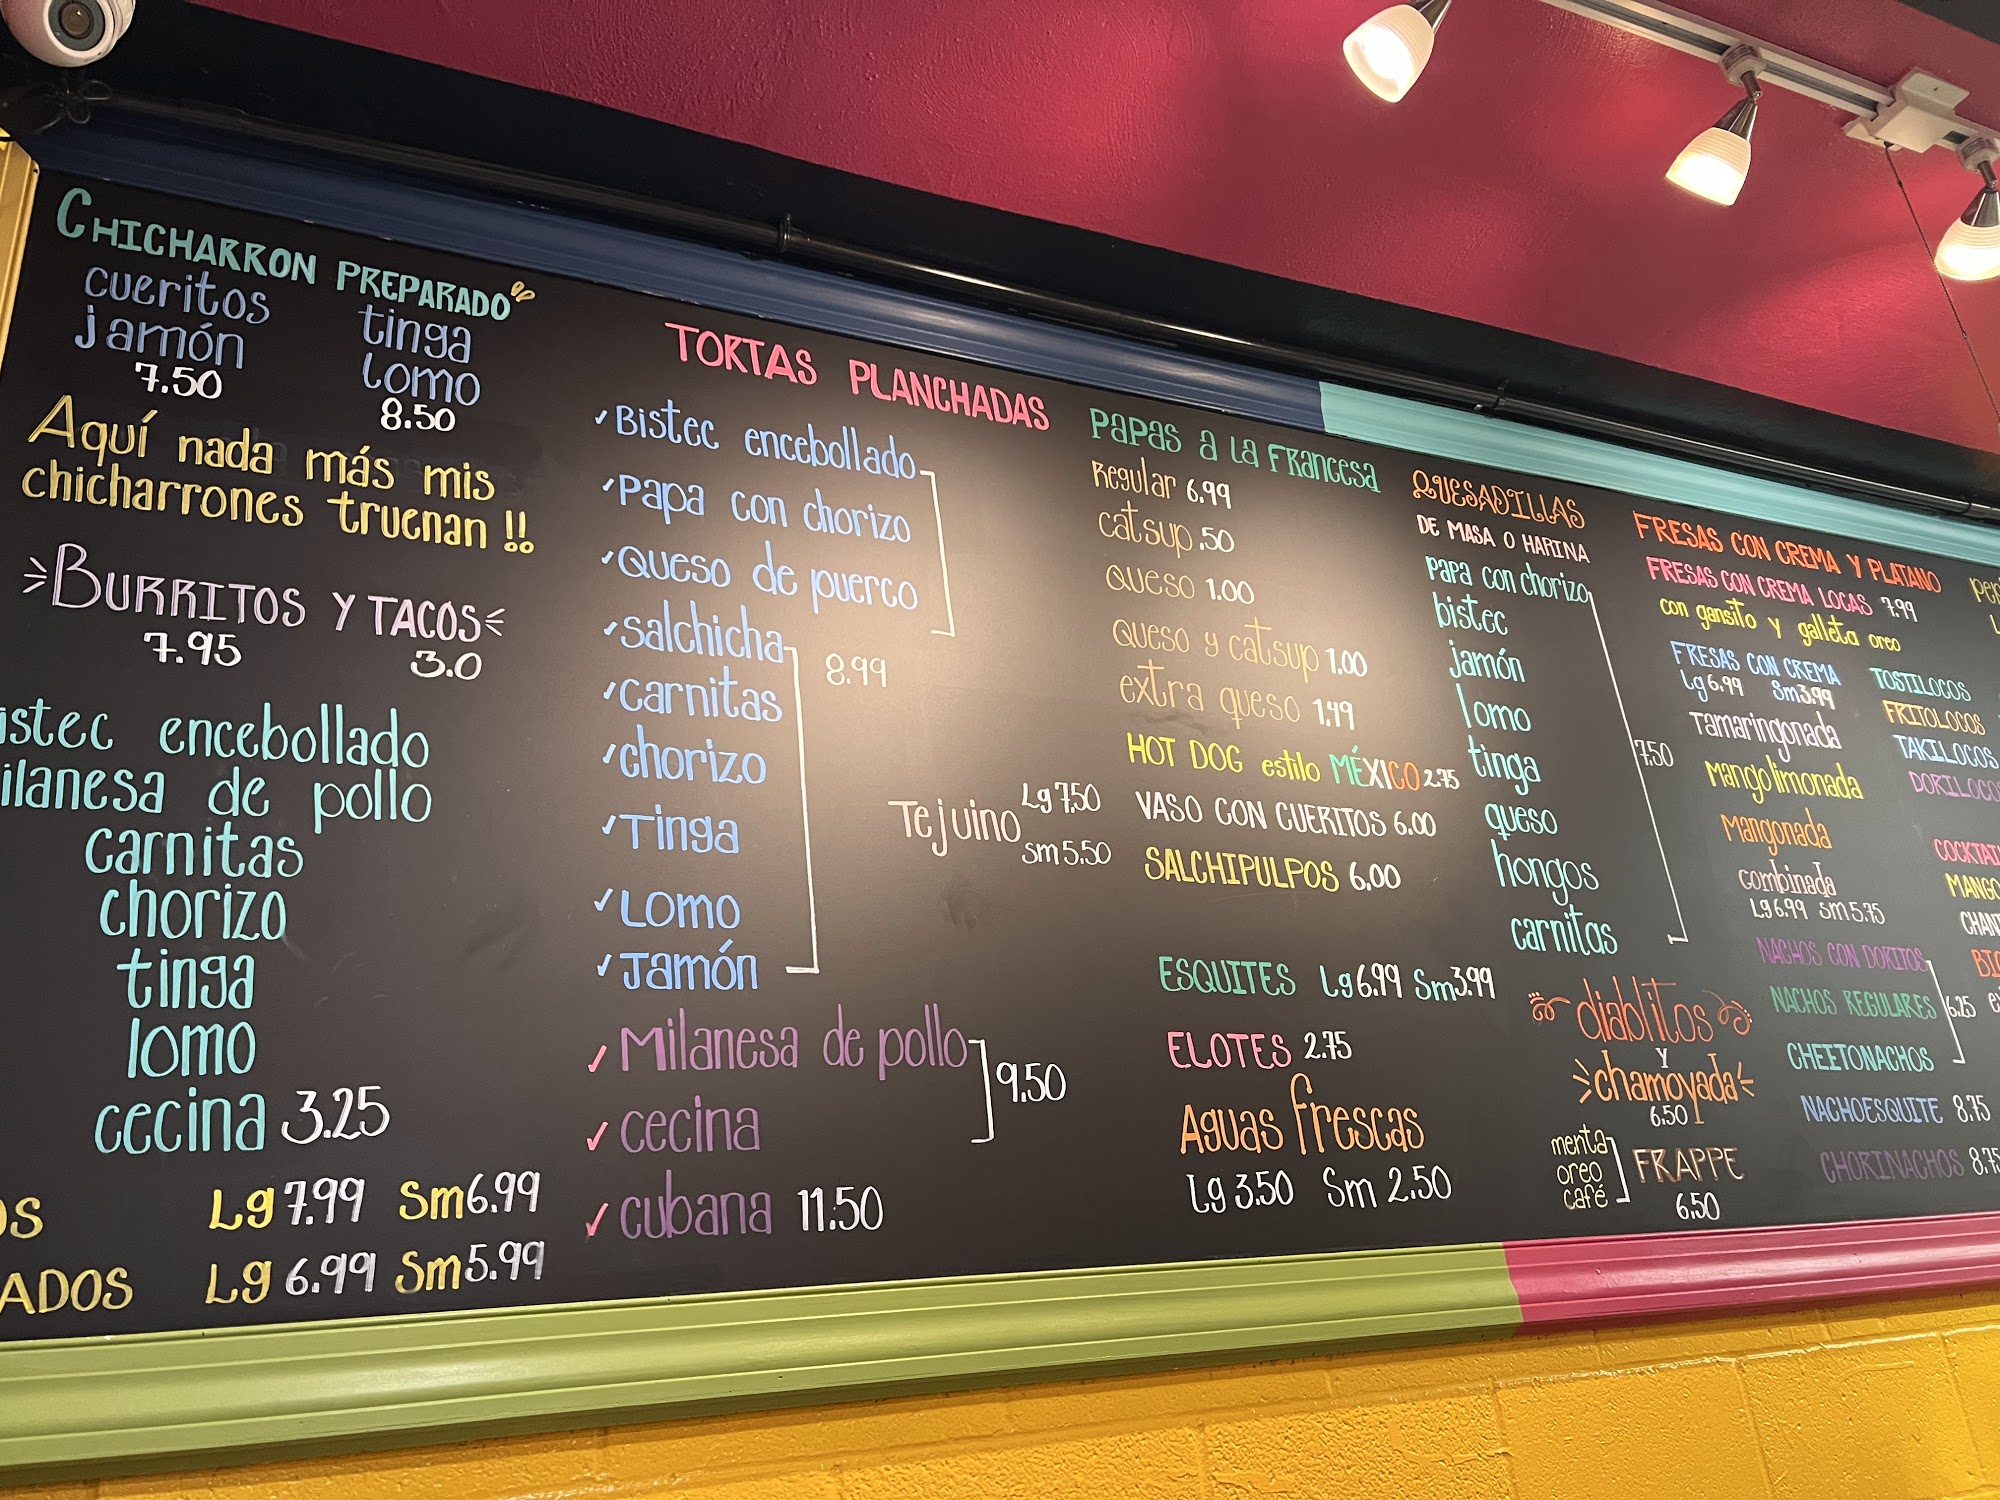 CHICHARRON PREPARADO
cueritos tinga
jamón lomo
7.50 8.50
Aquí nada más mis
chicharrones truenan !!
BURRITOS Y TACOS
7.95 3.0
istec encebollado
ilanesa de pollo
carnitas
chorizo
tinga
lomo
cecina 3.25
OS Lg 7.99 Sm 6.99
ADOS Lg 6.99 Sm 5.99
TORTAS PLANCHADAS
Bistec encebollado
Papa con chorizo
Queso de puerco
salchicha
carnitas
chorizo
8.99
Tinga
Lomo
Jamón
Milanesa de pollo
cecina
9.50
cubana 11.50
Tejuino Lg 7.50
Sm 5.50
PAPAS A LA FRANCESA
Regular 6.99
catsup .50
Queso 1.00
Queso y catsup 1.00
extra queso 1.49
HOT DOG estilo MÉXICO 2.75
VASO CON CUERITOS 6.00
SALCHIPULPOS 6.00
ESQUITES Lg 6.99 Sm 3.99
ELOTES 2.75
Aguas frescas
Lg 3.50 Sm 2.50
QUESADILLAS
DE MASA O HARINA
papa con chorizo
bistec
jamón
lomo
tinga
7.50
queso
hongos
carnitas
diablitos
y
chamoyada
6.50
menta
oreo
café
FRAPPE
6.50
FRESAS CON CREMA Y PLATANO
FRESAS CON CREMA LOCAS 7.99
con gansito y galleta oreo
FRESAS CON CREMA
Lg 6.99 Sm 3.99
Tamaringonada
Mangolimonada
Mangonada
combinada
Lg 6.99 Sm 5.75
NACHOS CON DORITOS
NACHOS REGULARES 6.25
CHEETONACHOS
NACHOESQUITE 8.75
CHORINACHOS 8.75
TOSTILOCOS
FRITOLOCOS
TAKILOCOS
DORILOCOS
COCKTAI
MANGO